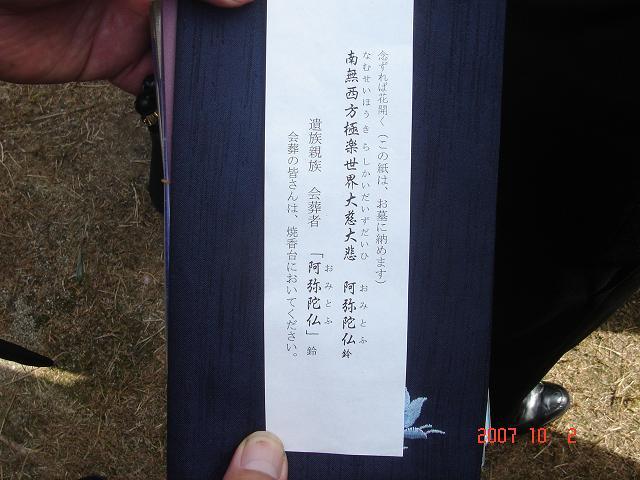 念ずれば花開く（この紙は、お墓に納めます）
なむせいほうきらしかいだいずだいひ　おみとふ
南無西方極楽世界大慈大悲　阿弥陀仏鈴
おみとふ
遺族親族　会葬者　「阿弥陀仏」鈴
会葬の皆さんは、焼香台においてください。
2007 10 2